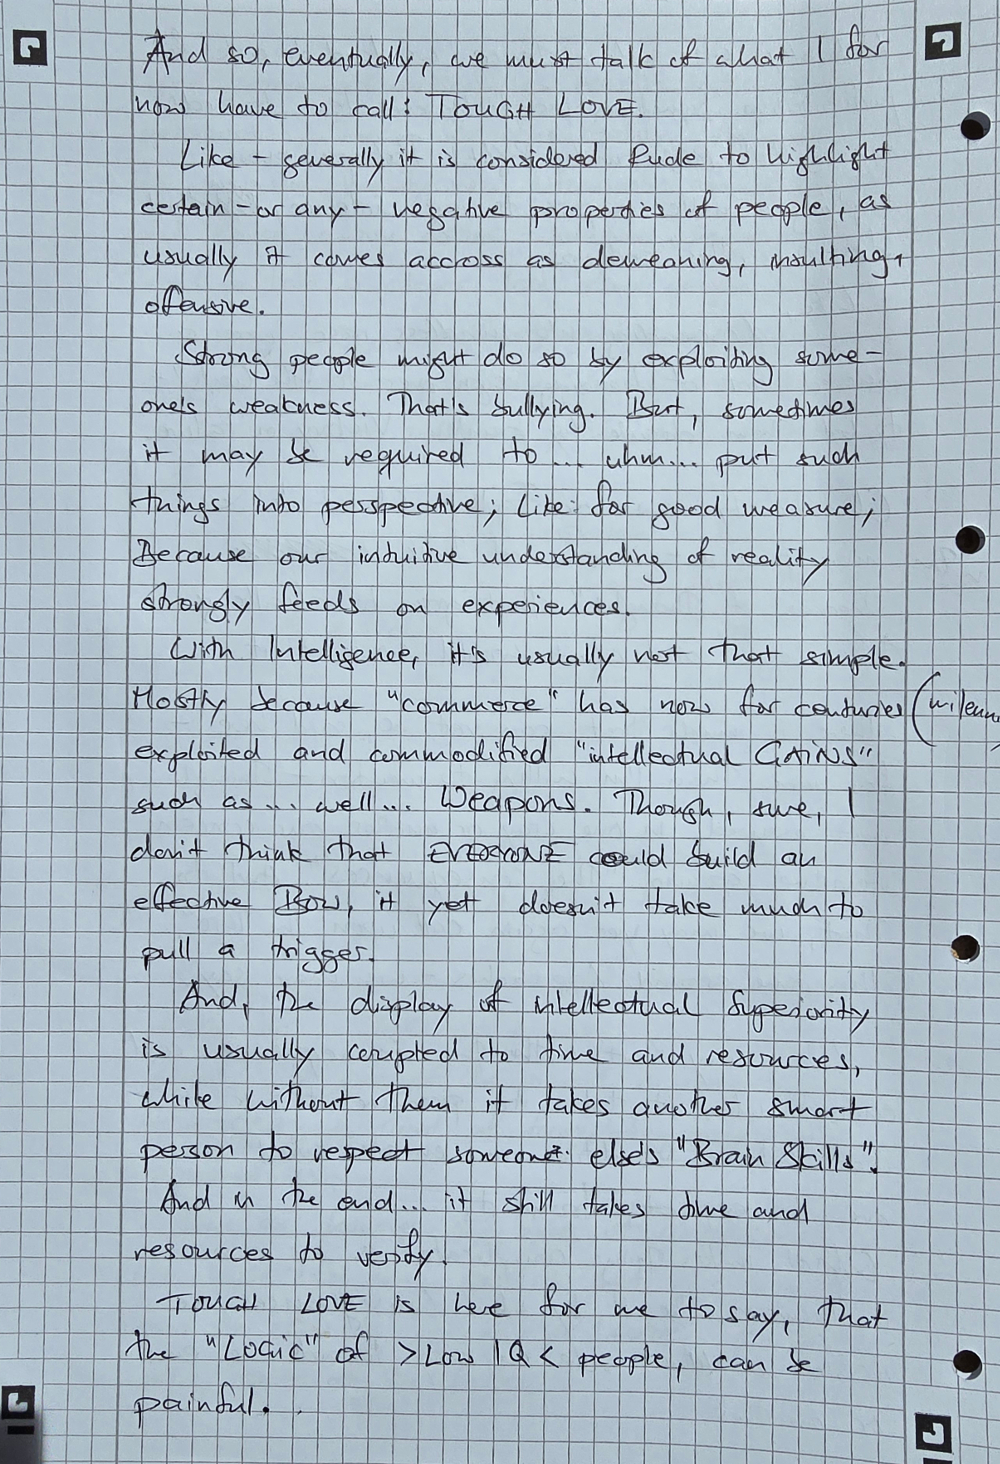 And so, eventually, we must talk of what I for
now have to call: TOUGH LOVE.
Like - generally it is considered Rude to highlight
certain - or any - negative properties of people, as
usually it comes accross as demeaning, insulting,
offensive.
Strong people might do so by exploiting some-
one's weakness. That's bullying. But, sometimes
it may be required to... uhm... put such
things into perspective; Like: for good measure;
Because our intuitive understanding of reality
strongly feeds on experiences.
With Intelligence, it's usually not that simple.
Mostly because "commerce" has now for centuries (
exploited and commodified "intellectual GAINS"
such as... well... Weapons. Though, sure, I
don't think that EVERYONE could build an
effective Bow, it yet doesn't take much to
pull a trigger.
And, the display of intellectual Superiority
is usually coupled to time and resources,
while without them it takes another smart
person to respect someone else's "Brain Skills".
And in the end... it still takes time and
resources to verify.
TOUGH LOVE is here for me to say, that
the "LOGIC" of >Low IQ< people, can be
painful.